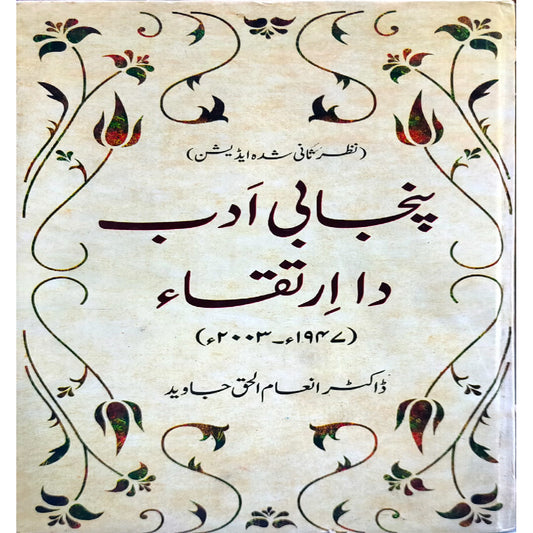 (نظرثانی شدہ ایڈیشن)
پنجابی اَدب
دا اِرتقاء
(۱۹۴۷ء۔۲۰۰۳ء)
ڈاکٹر انعام الحق جاوید